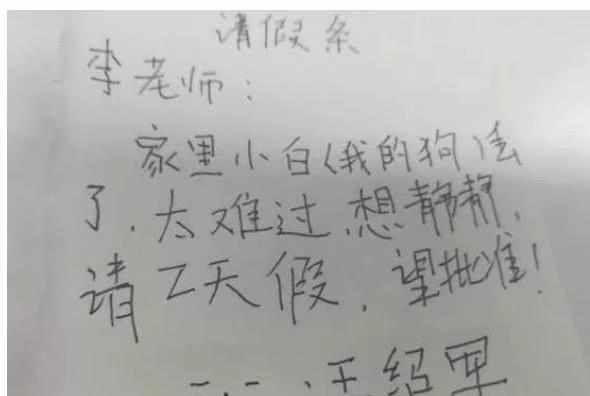 请假条
李老师：
家里小白(我的狗)丢
了，太难过，想静静，
请2天假，望批准！
王绍军